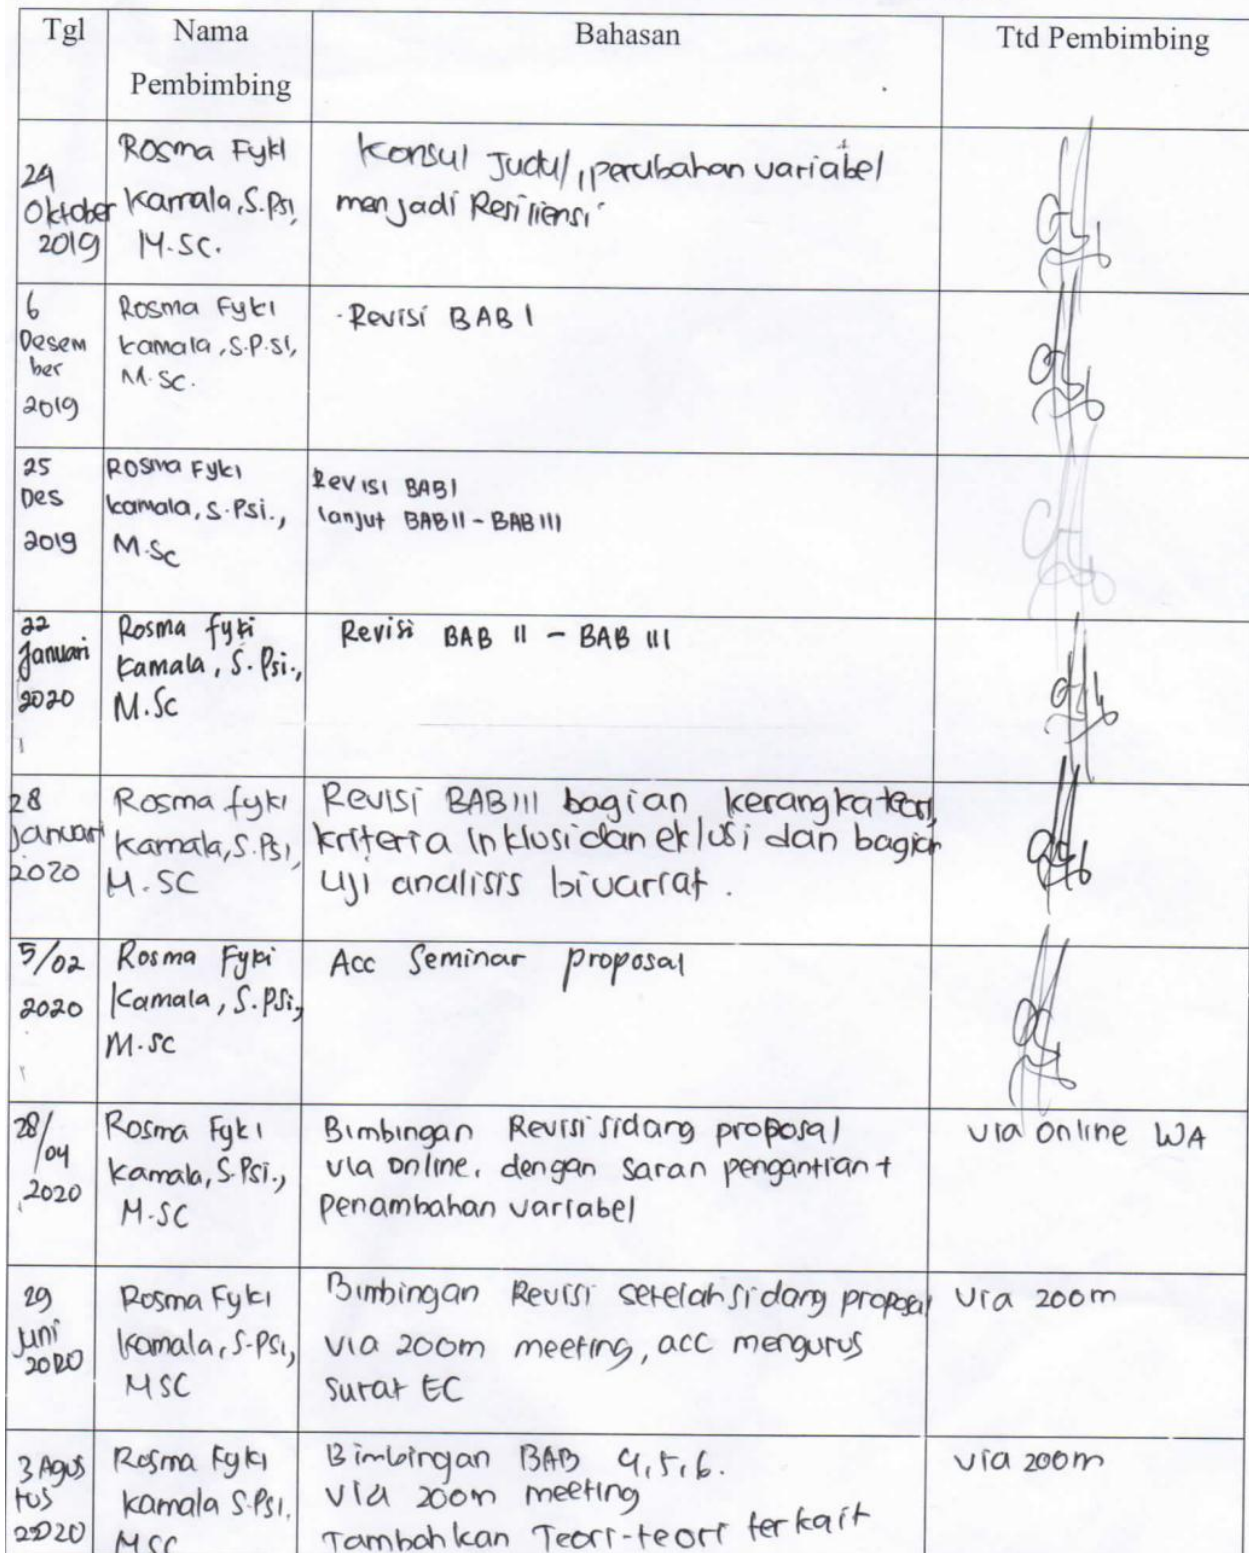 Tgl Nama Pembimbing Bahasan Ttd Pembimbing
24 Oktober 2019
Rosma Fyki
Kamala, S.Psi,
M.SC.
Konsul Judul, perubahan variabel
menjadi Resiliensi
6
Desem
ber
2019
Rosma Fyki
kamala, S.P.si,
M.Sc.
- Revisi BAB I
25
Des
2019
Rosma Fyki
kamala, S.Psi.,
M.Sc
Revisi BAB I
lanjut BAB II - BAB III
22
Januari
2020
Rosma fyki
Kamala, S.Psi.,
M.Sc
Revisi BAB II - BAB III
28
Januari
2020
Rosma fyki
Kamala, S.Psi,
M.SC
Revisi BAB III bagian kerangka teori,
kriteria inklusi dan eklusi dan bagian
Uji analisis bivariat.
5/02
2020
Rosma Fyki
Kamala, S.Psi,
M.SC
Acc Seminar proposal
28/04
2020
Rosma Fyki
kamala, S.Psi.,
M.SC
Bimbingan Revisi sidang proposal
via online. dengan saran pengantian +
Penambahan variabel
via online WA
29
Juni
2020
Rosma Fyki
Kamala, S.Psi,
MSC
Bimbingan Revisi setelah sidang proposal
via zoom meeting, acc mengurus
surat EC
via zoom
3 Agus
tus
2020
Rosma Fyki
kamala S.Psi.
MSC
Bimbingan BAB 4,5,6.
via zoom meeting
Tambahkan Teori-teori terkait
via zoom